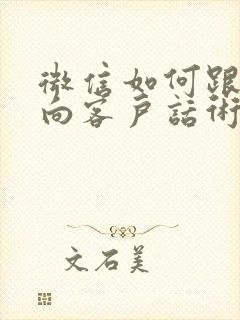 微信如何跟
向客户話術
文石美